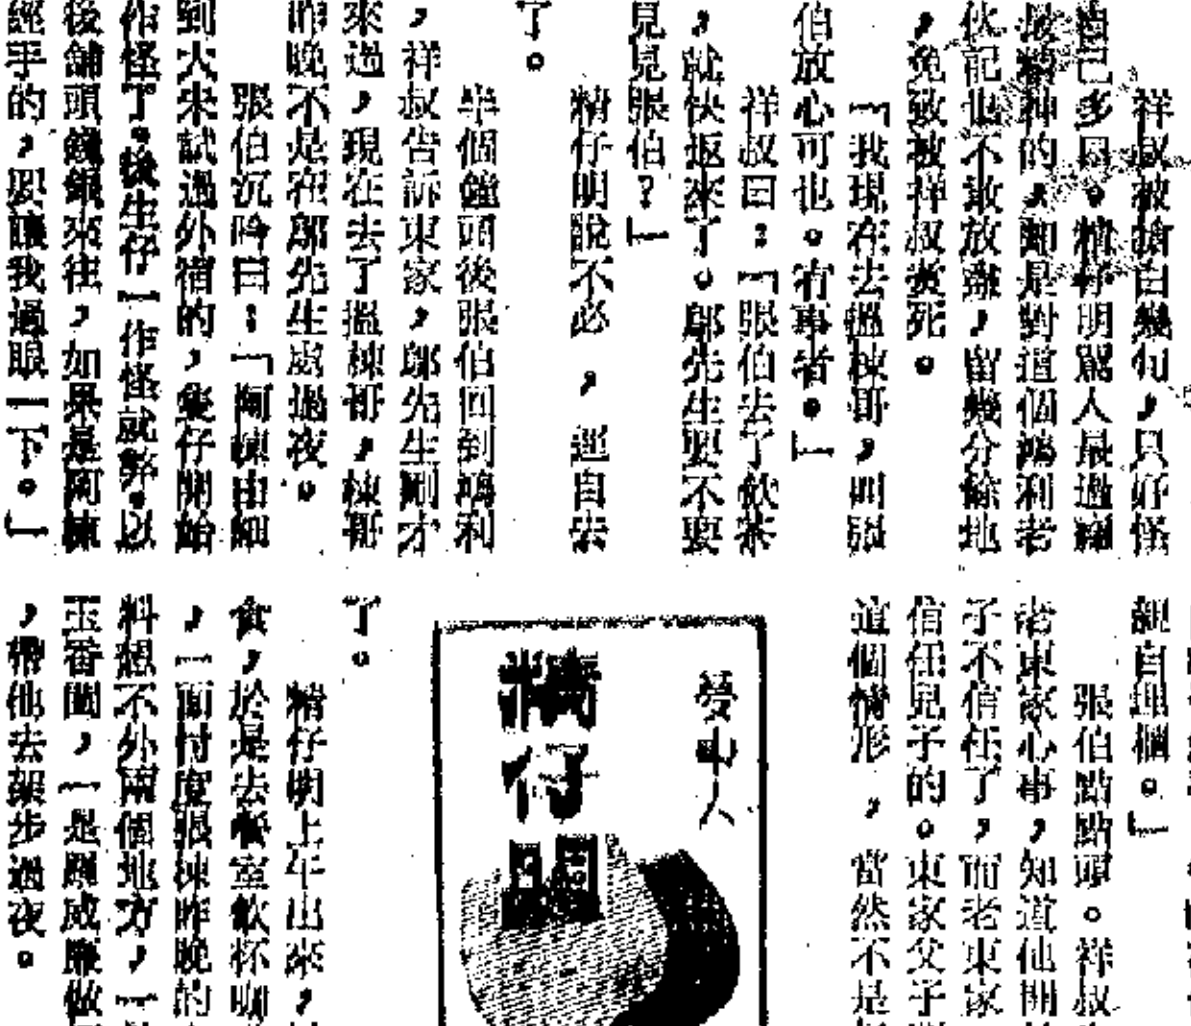 祥叔被搶白幾句，只好怪
自己多口。精仔明罵人最過癮
最精神的，卻是對這個鴻利老
伙記也不敢放肆，留幾分餘地
，免致被祥叔煲死。
「我現在去搵棟哥，叫張
伯放心可也。有事者。」
祥叔曰：「張伯去了飲茶
，就快返來了。鄔先生要不要
見見張伯？」
精仔明說不必，逕自去
了。
半個鐘頭後張伯回到鴻利
，祥叔告訴東家，鄔先生剛才
來過，現在去了搵棟哥，棟哥
昨晚不是在鄔先生處過夜。
張伯沉吟曰：「阿棟由細
到大未試過外宿的，隻仔開始
作怪了。後生仔一作怪就弊。以
後舖頭錢銀來往，如果是阿棟
經手的，要讓我過眼一下。」
親自理個。」
張伯點點頭。祥叔
老東家心事，知道他開
子不信任了，而老東家
信任兒子的。東家父子
這個情形，當然不是
夢中人
精仔明
了。
精仔明上午出來，
食，於是去餐室飲杯咖
，一面忖度張棟昨晚的
料想不外兩個地方，一
玉香閨，一是顧威廉做
，帶他去架步過夜。